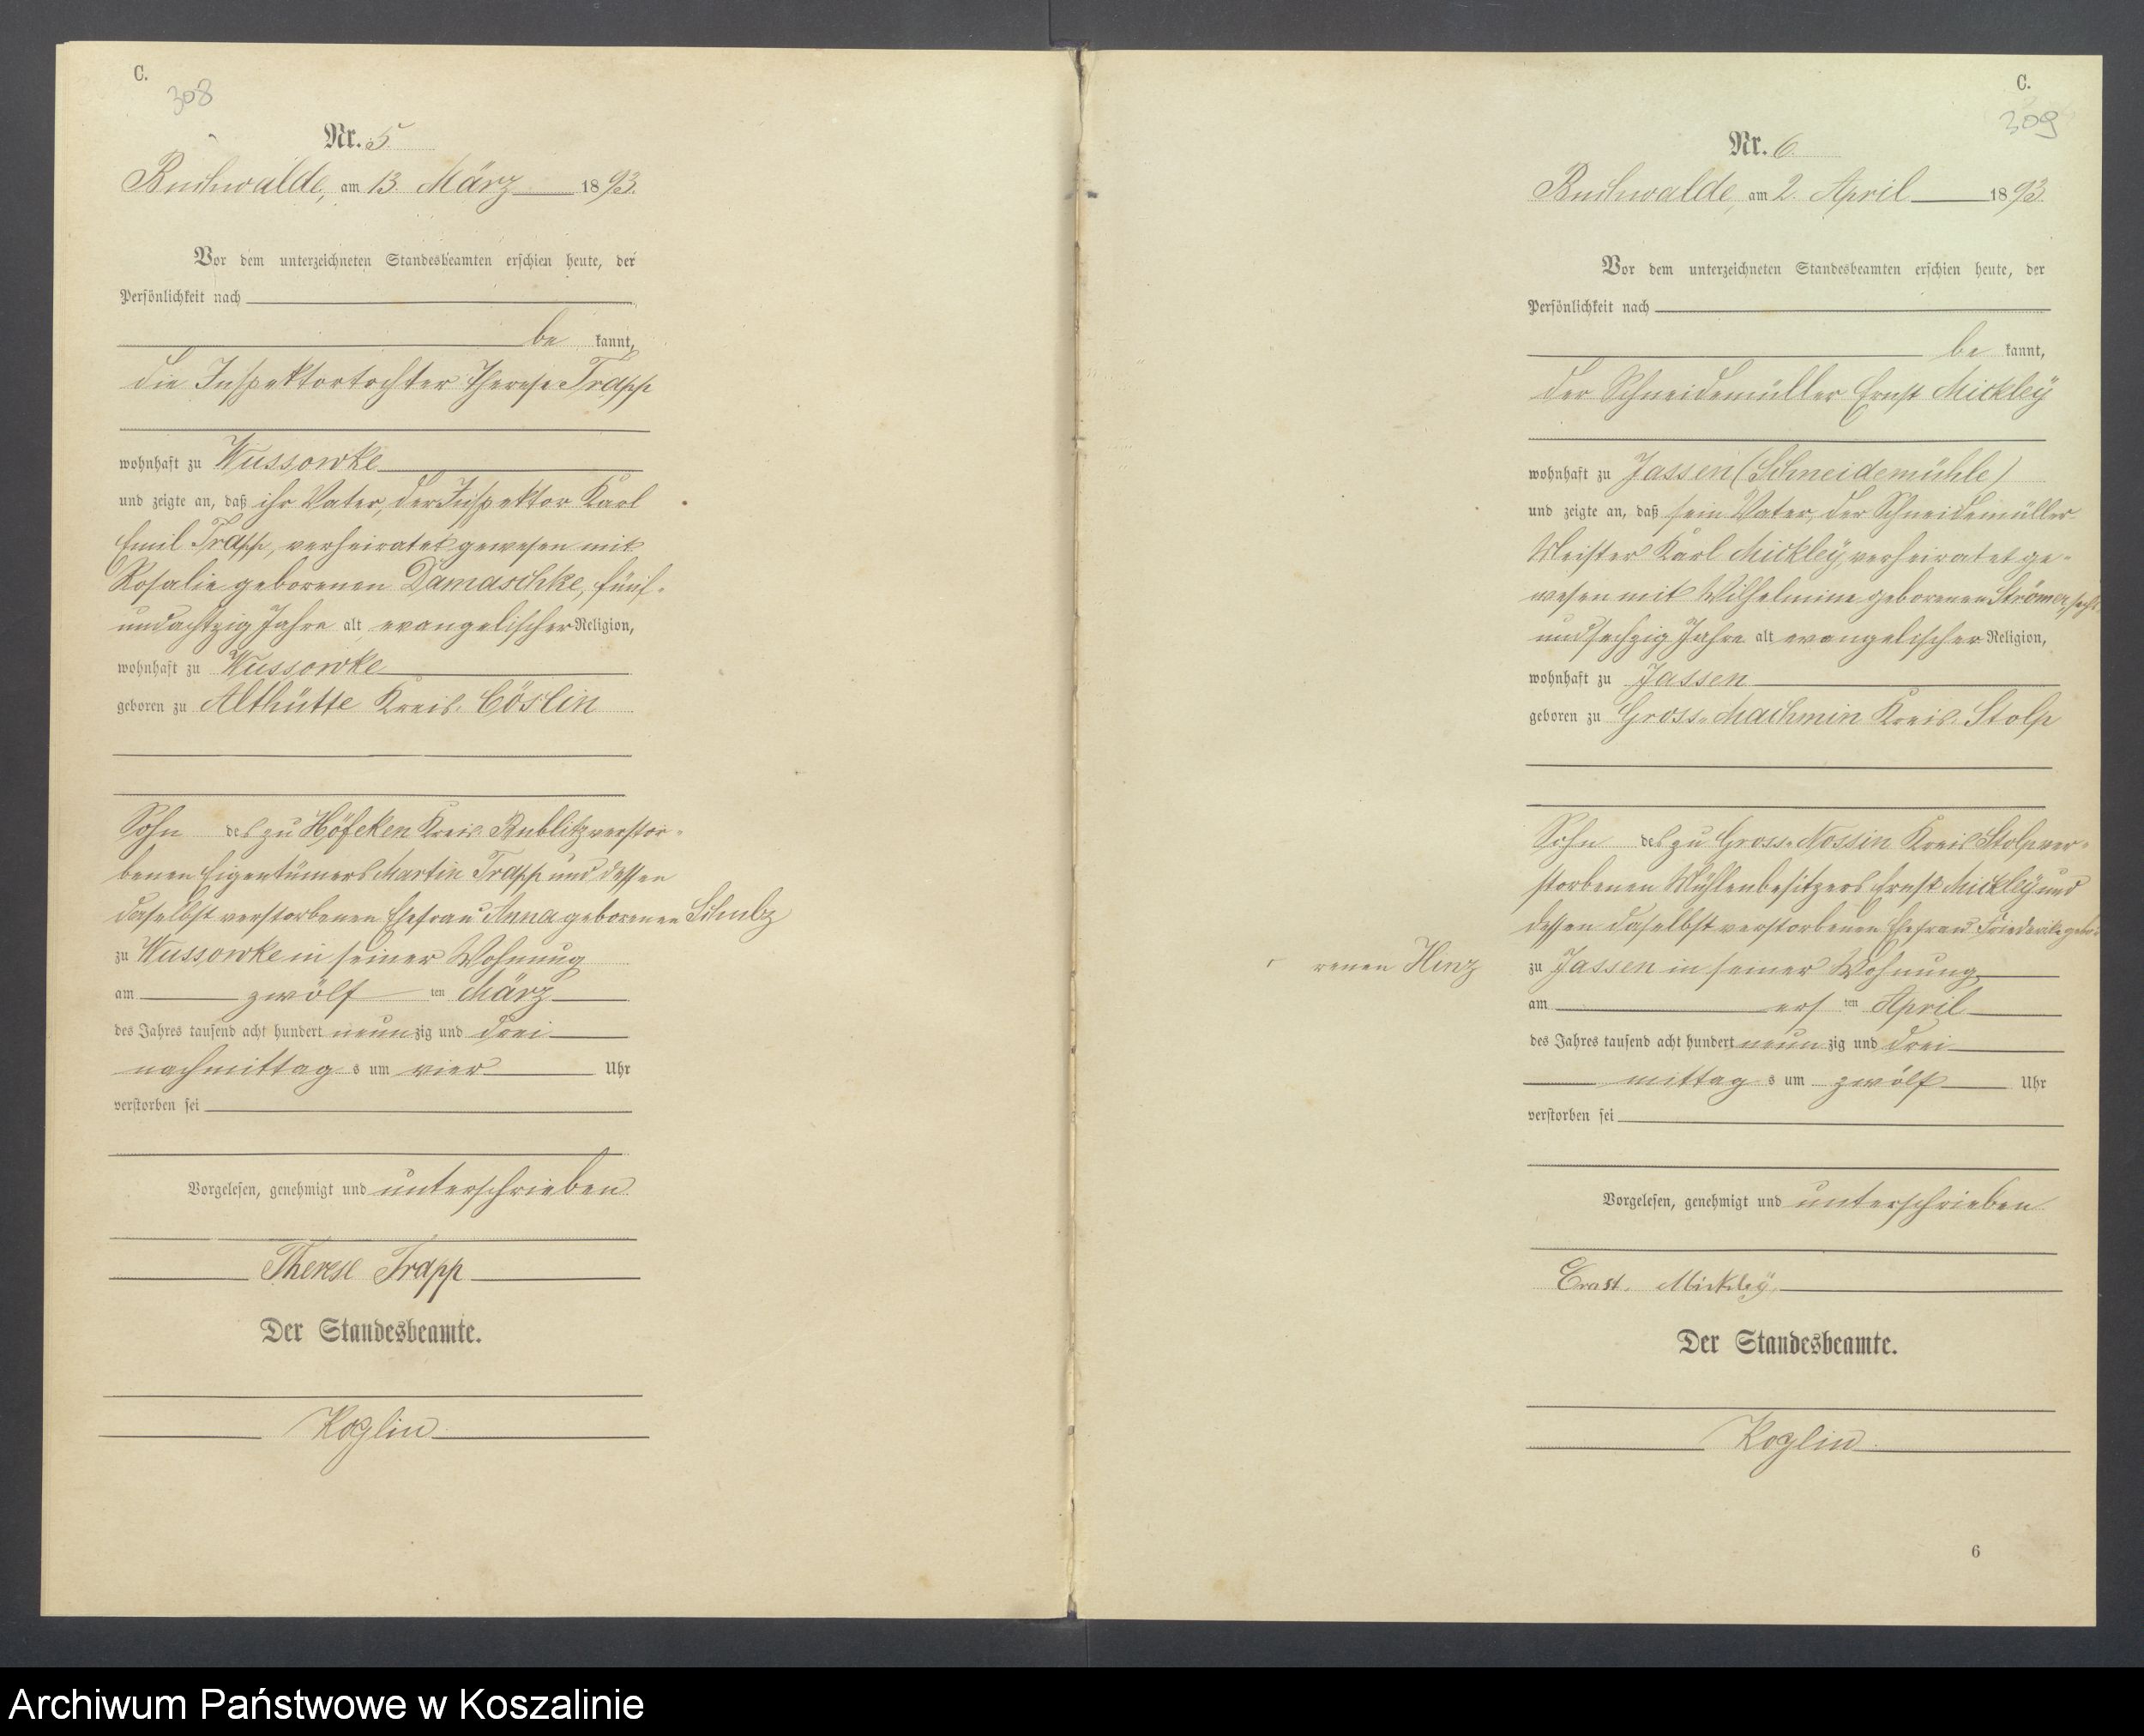 C.
308
Nr. 5
Buchwalde, am 13. März 1893.
Vor dem unterzeichneten Standesbeamten erschien heute, der
Persönlichkeit nach
be kannt,
die Inspektortochter Therese Trapp
wohnhaft zu Wussowke
und zeigte an, daß ihr Vater, der Inspektor Karl
Emil Trapp, verheiratet gewesen mit
Rosalie geborenen Damaschke, fünf-
undachtzig Jahre alt, evangelischer Religion,
wohnhaft zu Wussowke
geboren zu Althütte Kreis Cöslin
Sohn des zu Höfeken Kreis Bublitz verstor-
benen Eigentümers Martin Trapp und dessen
daselbst verstorbenen Ehefrau Anna geborenen Schulz
zu Wussowke in seiner Wohnung
am zwölf ten März
des Jahres tausend acht hundert neun zig und drei
nachmittag s um vier Uhr
verstorben sei
Vorgelesen, genehmigt und unterschrieben
Therese Trapp
Der Standesbeamte.
Koglin
C.
309
Nr. 6.
Buchwalde, am 2. April 1893.
Vor dem unterzeichneten Standesbeamten erschien heute, der
Persönlichkeit nach
be kannt,
der Schneidemüller Ernst Mickley
wohnhaft zu Jassen (Schneidemühle)
und zeigte an, daß sein Vater, der Schneidemüller-
Meister Karl Mickley, verheiratet ge-
wesen mit Wilhelmine geborenen Strömer, sechs
undsechzig Jahre alt, evangelischer Religion,
wohnhaft zu Jassen
geboren zu Gross-Machmin Kreis Stolp
Sohn des zu Gross-Nossin Kreis Stolp ver-
storbenen Mühlenbesitzers Ernst Mickley und
dessen daselbst verstorbenen Ehefrau Friederike gebo-
renen Hinz
zu Jassen in seiner Wohnung
am ers ten April
des Jahres tausend acht hundert neun zig und drei
mittag s um zwölf Uhr
verstorben sei
Vorgelesen, genehmigt und unterschrieben
Ernst Mickley
Der Standesbeamte.
Koglin
6
Archiwum Państwowe w Koszalinie